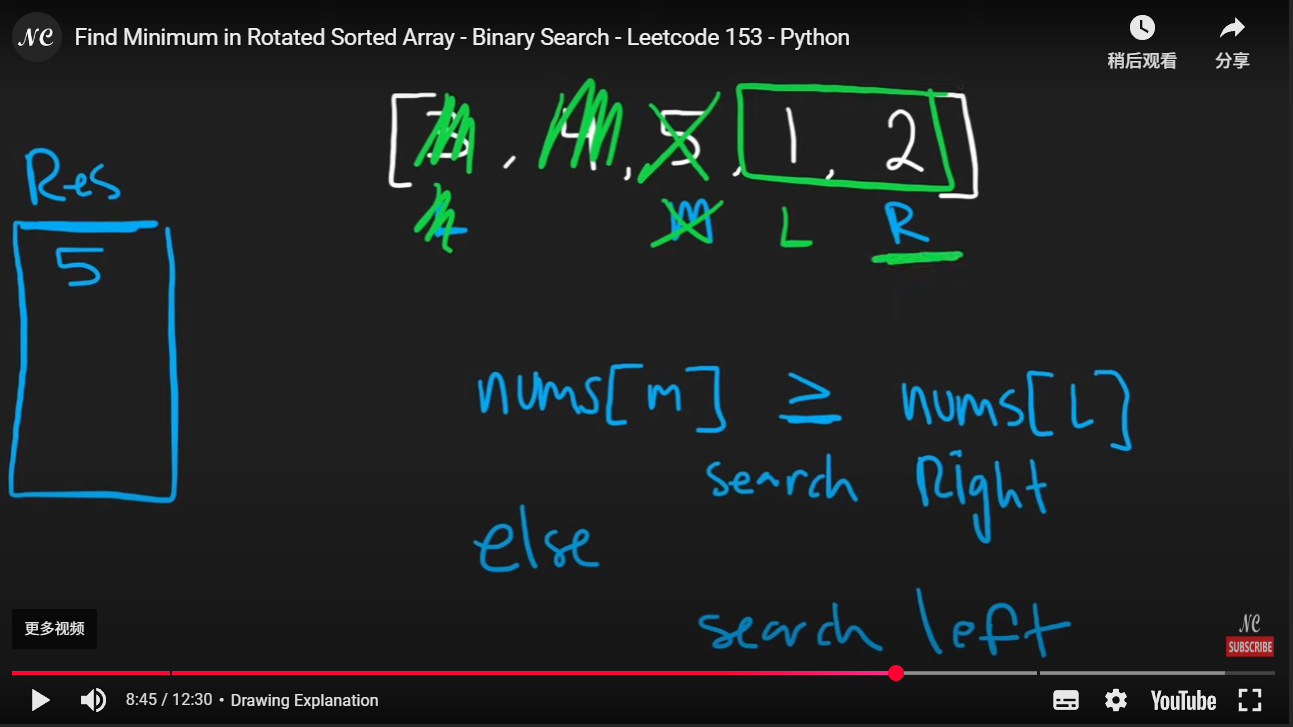 NC Find Minimum in Rotated Sorted Array - Binary Search - Leetcode 153 - Python
稍后观看 分享
[3, 4, 5, 1, 2]
L M L R
Res
5
nums[m] ≥ nums[L]
search Right
else
search left
更多视频
NC
SUBSCRIBE
8:45 / 12:30 • Drawing Explanation
YouTube